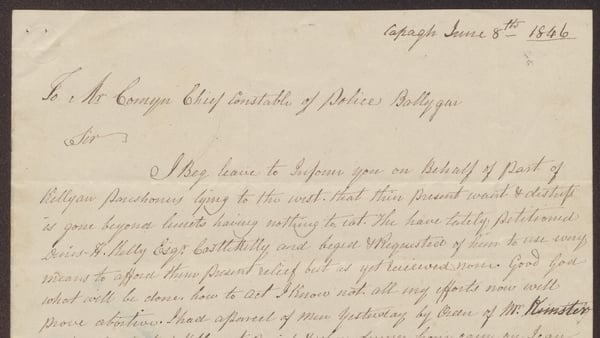 Capagh June 8th 1846
To Mr Comyn Chief Constable of Police Ballygar
Sir
I Beg leave to Inform you on Behalf of Part of
Killyan Parishoners lying to the west that thier Present want & distress
is gone beyond limits having nothing to eat. the have lately Petitioned
Denis H. Kelly Esqr CastleKelly and beged & Requested of him to use every
means to afford them Present relief but as yet received none. Good God
what will be done, how to act I know not. all my efforts now will
prove abortive. I had a parcel of men yesterday by Order of Mr